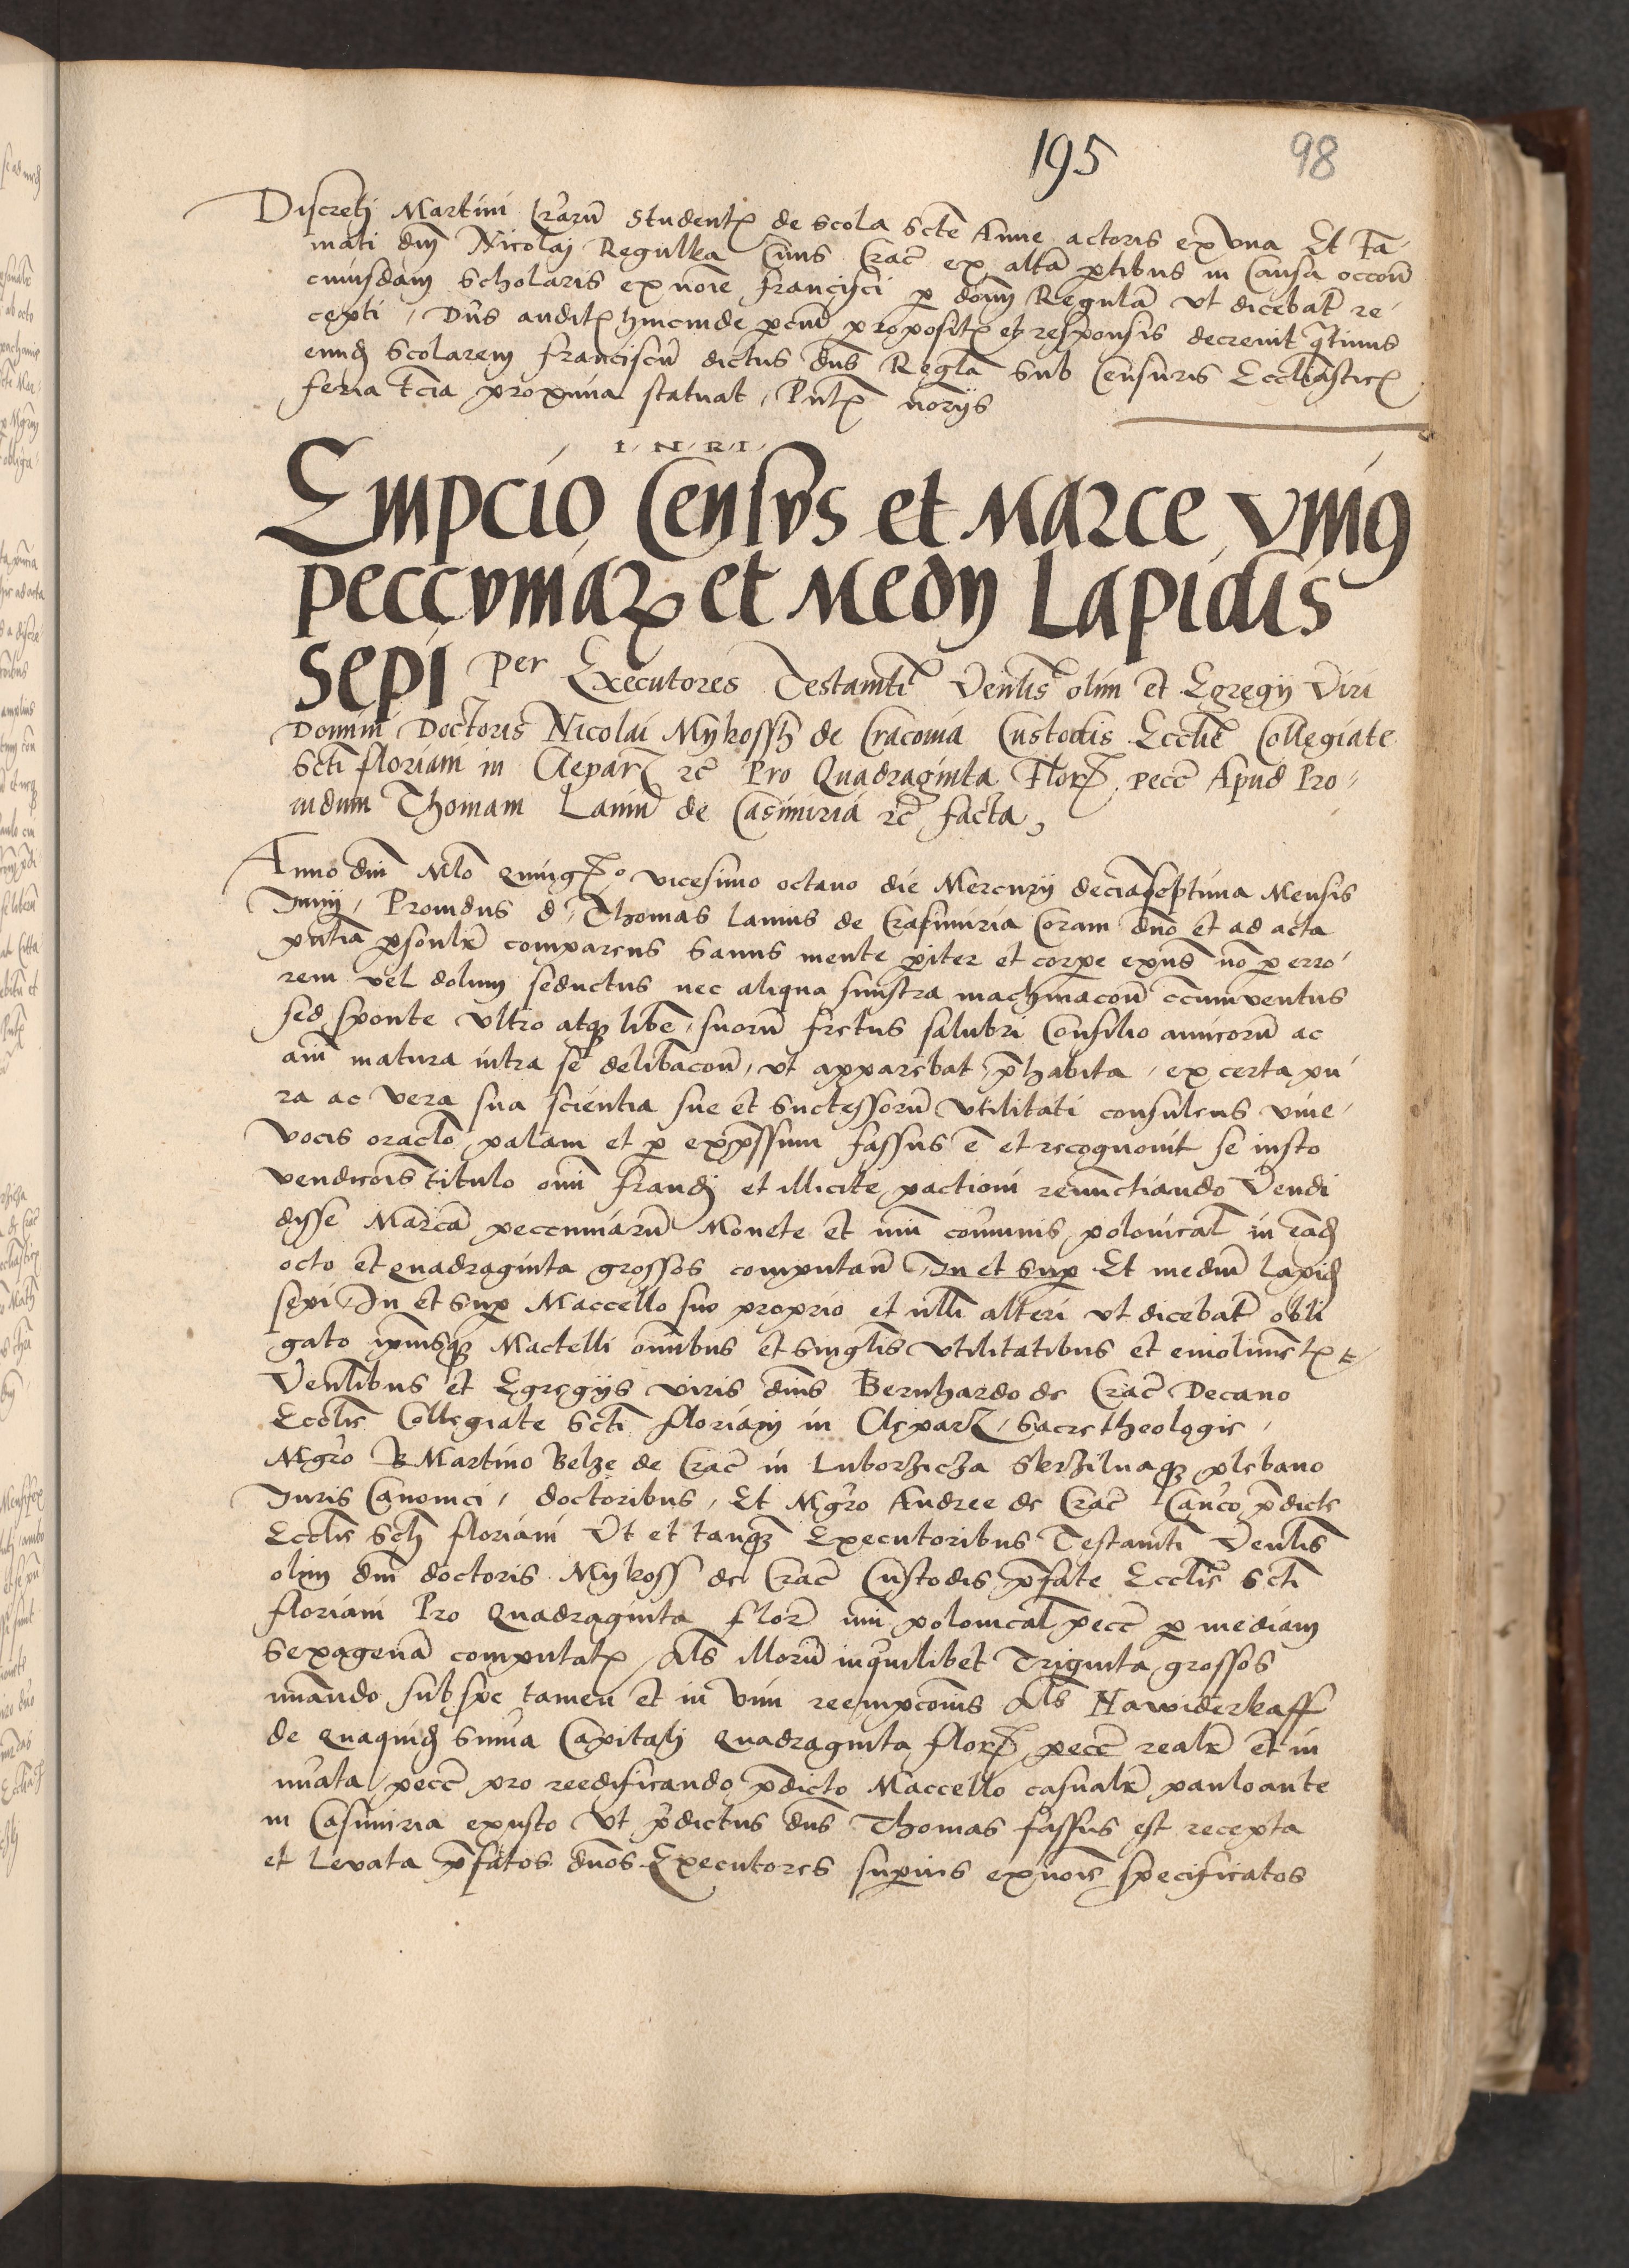 195
98
Discreti Martini Cr̄arū Student de Scola Scte Anne actoris ex una Et Fa-
mati dn̄i Nicolai Regulka Civis Crac̄ ex altā ꝑtibus in Causa occoñ
cuiusdam Scholaris ex noīe Francisci ꝑ dom̄ Regulā ut dicebat̄ re-
cepti, Dn̄s audit hincinde proposit et responsis decrevit qtinus
eund Scolarem Franciscū dictus dn̄s Regl̄a sub Censuris Eccl̄iastic
feria t̄cia proxima statuat, Pn̄t norijs
I · N · R · I
Empcio Censvs et Marce vniꝰ
peccvniaꝝ et Medij Lapidis
Sepi per Executores Testam̄ti Ven̄lis olim et Egregij Viri
Domini Doctoris Nicolai Mykossh de Cracovia Custodis Eccl̄ie Collegiate
Scti Floriani in Clepar rc̄ Pro Quadraginta Flor pecc̄ Apud Pro-
vidum Thomam Laniū de Casimiria rc̄ facta,
Anno dn̄i Ml̄o Quingo vicesimo octavo die Mercurij decīaseptima Mensis
Junij, Providus d. Thomas lanius de Casimiria Coram dn̄o et ad acta
pn̄tia ꝑsonlr̄ comparens sanus mente ꝑiter et corpe exn̄s nō ꝑ erro-
rem vel dolum seductus nec aliqua sinistra machinacoñ ccumventus
sed sponte ultro atqꝫ libē, suorū fretus salubri Consilio amicorū ac
aīi matura intra se delibacoñ, ut apparebat p̄habita, ex certa pu-
ra ac vera sua scientia sue et Successorū utilitati consulens vive
vocis oraclo palam et ꝑ exp̄ssum fassus ē et recognovit se iusto
vendicois titulo om̄i fraudi et illicite pactioni renunctiando Vendi
disse Marcā peccuniarū Monete et nūi cōmunis polonical̄ in ead
octo et quadraginta grossos computañ In et Suꝑ Et mediū lapid
sepi, In et Suꝑ Maccello suo proprio et nlli alteri ut dicebat̄ obli
gato ipiusqꝫ Maccelli om̄ibus et singlis utilitatibus et emoliment
Ven̄libus et Egregijs viris dn̄is Bernhardo de Crac̄ Decano
Eccl̄ie Collegiate Scti Floriani in Clepar, Sacre theologie,
Mgr̄o Martino Belze de Crac̄ in Luborzicza plebano
Juris Canonici, doctoribus, Et Mgr̄o Andree de Crac̄ Can̄co p̄dicte
Eccl̄ie Scti Floriani Ut et tanqꝫ Executoribus Testam̄ti Ven̄lis
olim dn̄i doctoris Mykoss de Crac̄ Custodis p̄fate Eccl̄ie Scti
Floriani Pro Quadraginta flor̄ nūi polonical̄ pecc̄ ꝑ mediam
Sexagenā computat, Al̄s illorū in quilibet Triginta grossos
nūando sub spe tamen et in vim reempcoīs Al̄s Nawiderkaff
de quaquid Summa Capitali Quadraginta flor pecc̄ realr̄ et in
nūata pecc̄ pro reedificando p̄dicto Maccello casualr̄ paulo ante
in Casimiria exusto Ut p̄dictus dn̄s Thomas fassus est recepta
et levata p̄fatos dn̄os Executores superius ex noīe specificatos